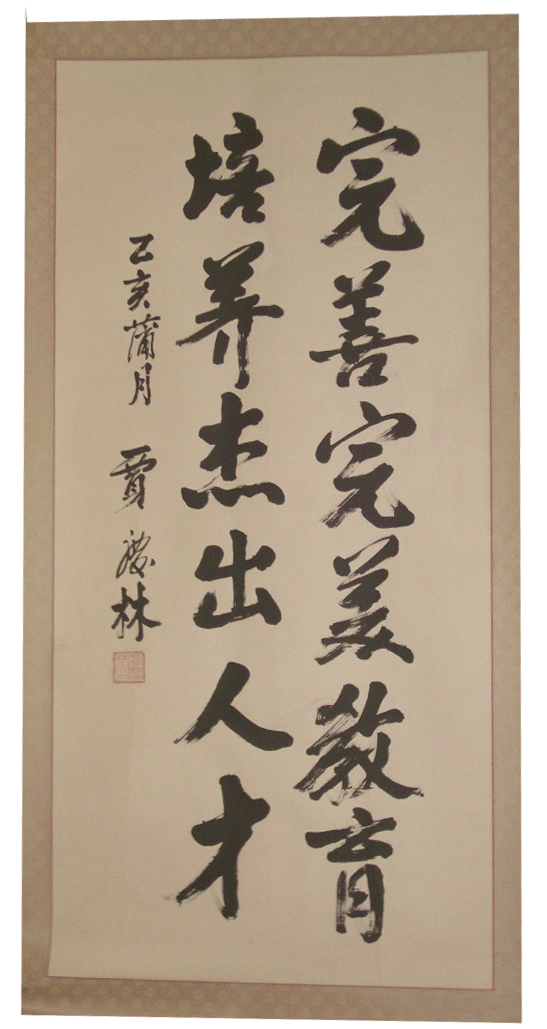 完善完美教育
培养杰出人才
乙亥蒲月
賈慶林